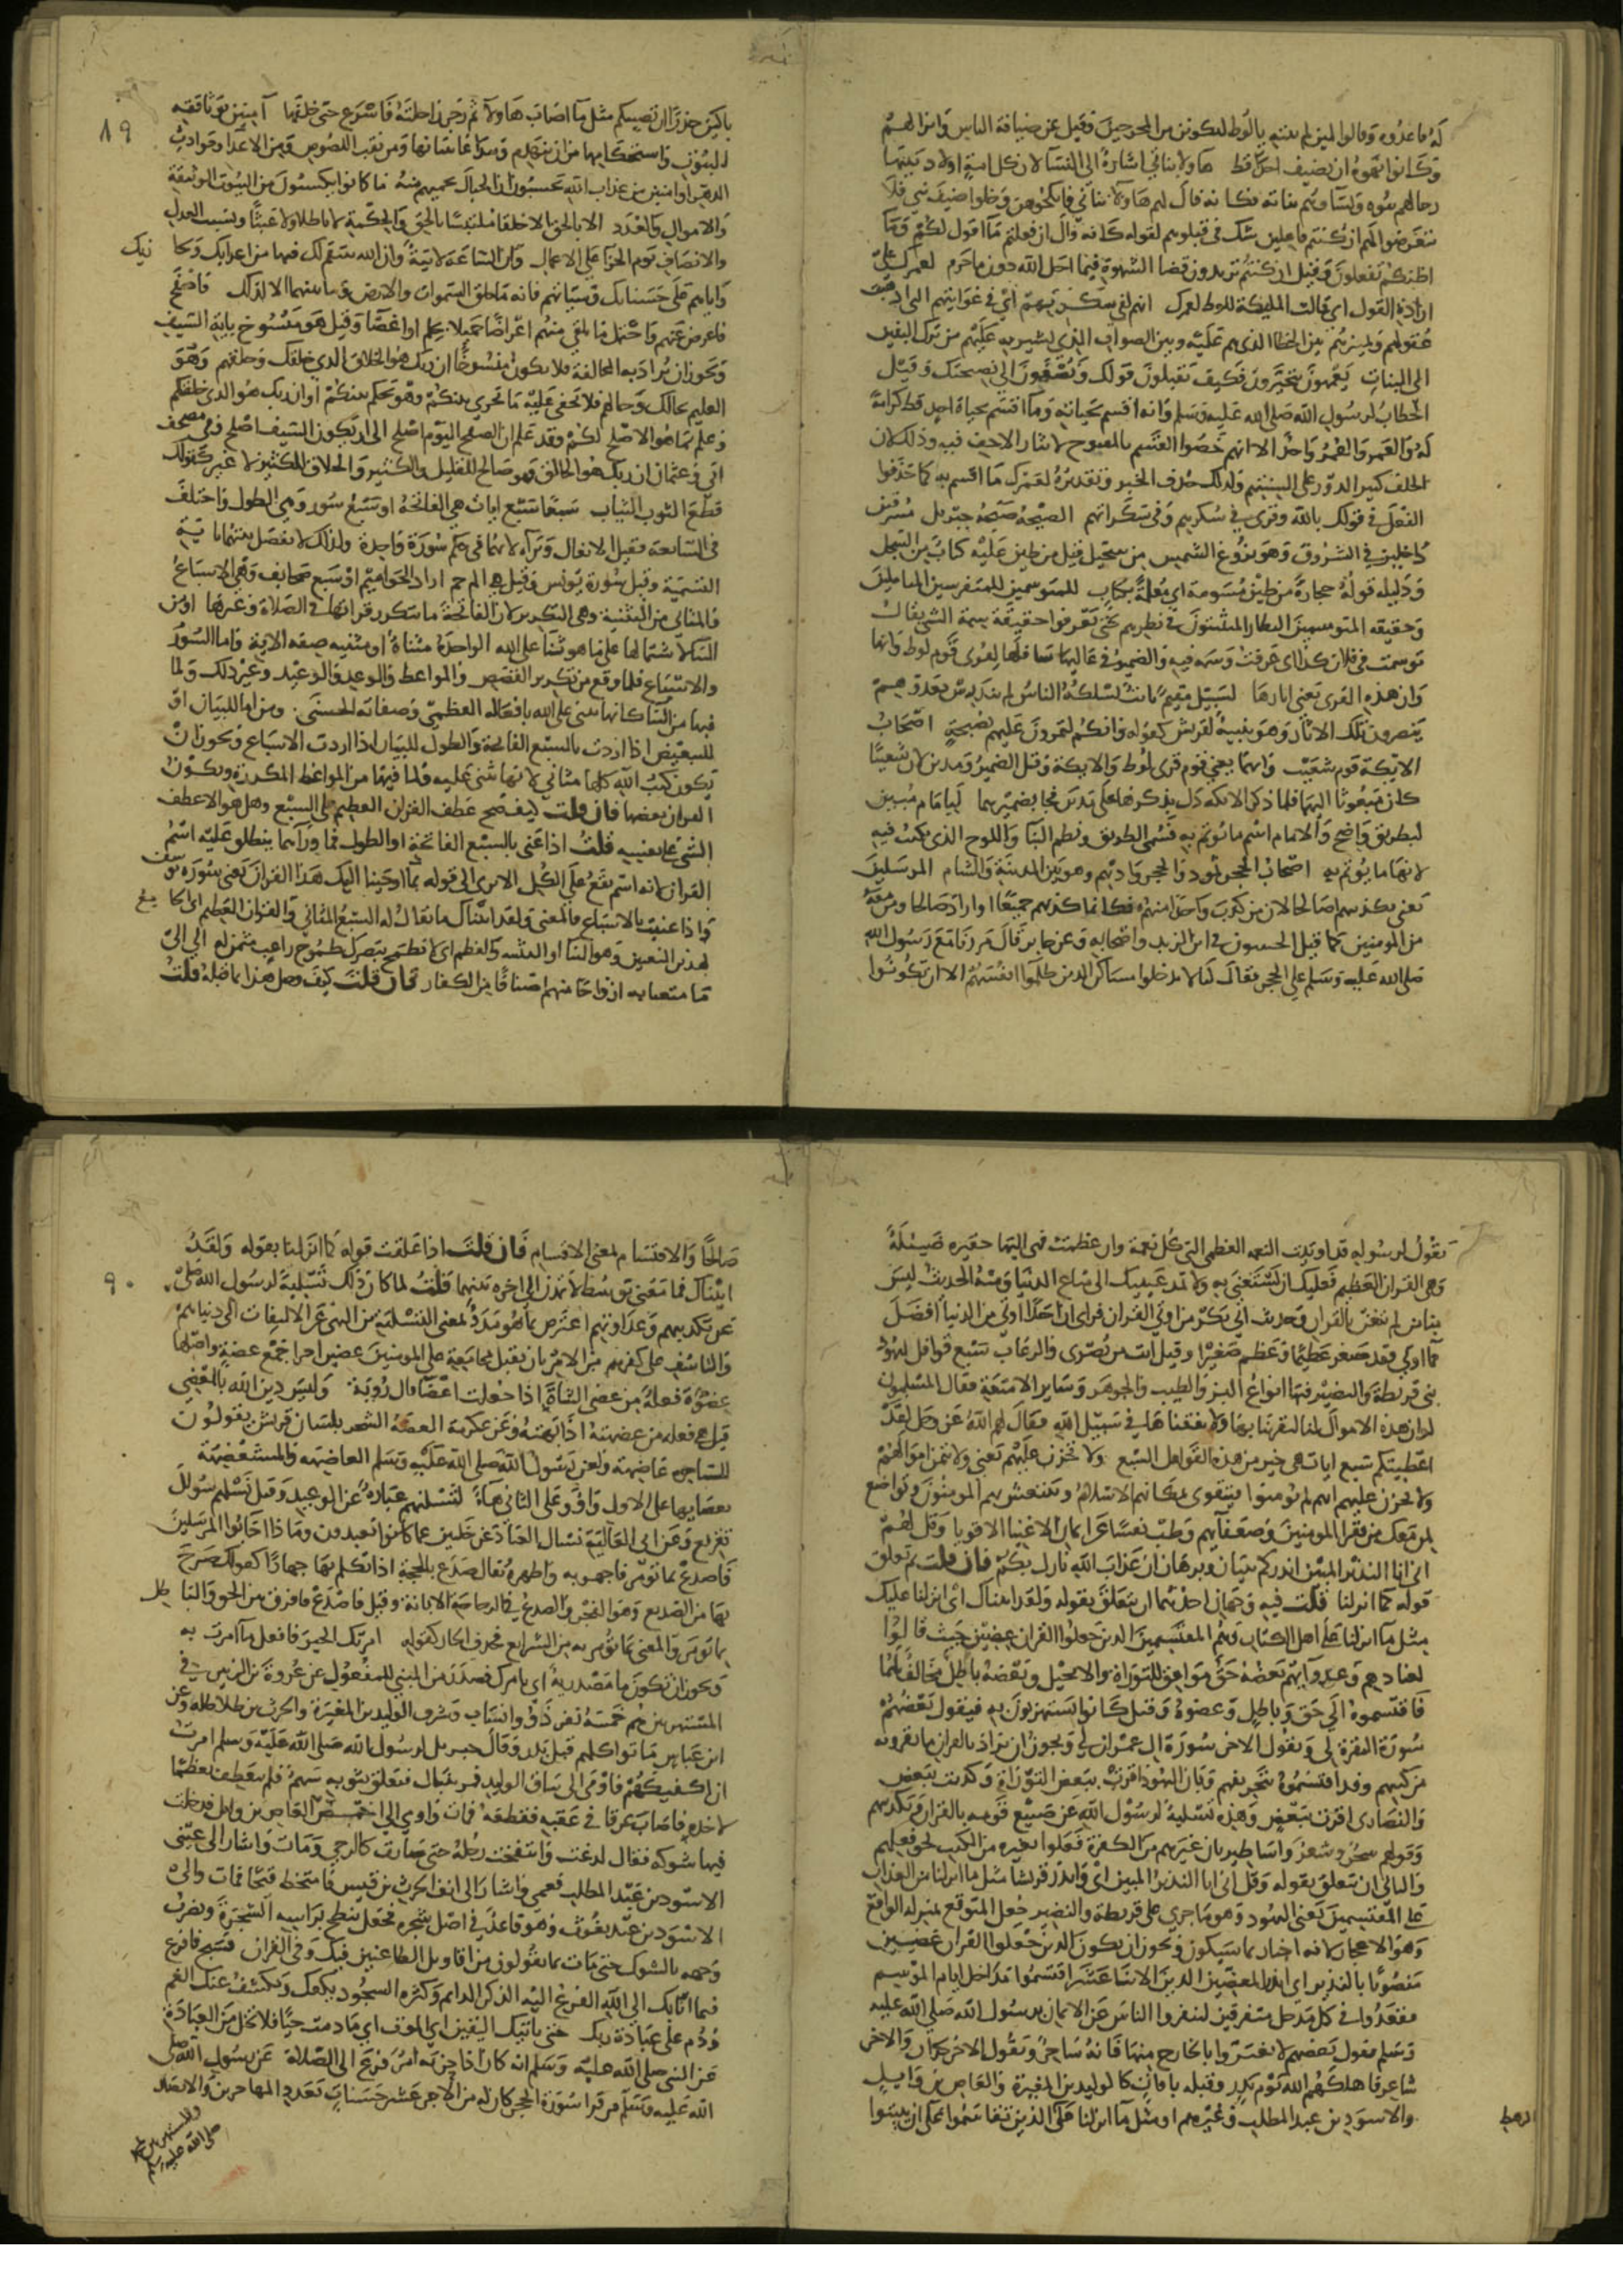 له فاعدوه وقالوا لين لم تنته يالوط لتكونن من المخرجين وقيل عن ضيافة الناس وانزالهم
وكانوا نهوه ان يضيف احدا قط هاولا بناتي اشارة الى النسا لان كل امة اولاد نبيها
رجالهم بنوه ونساوهم بناته فكانه قال لهم هاولا بناتي فانكحوهن وخلوا ضيفي فلا
تتعرضوا لهم ان كنتم فاعلين شك في قبولهم لقوله كانه قال ان فعلتم ما اقول لكم وما
اظنكم تفعلون وقيل ان كنتم تريدون قضا الشهوة فيما احل الله دون ما حرم لعمرك على
ارادة القول اي قالت المليكة للوط لعمرك انهم لفي سكرتهم اي في غوايتهم التي اذهبت
عقولهم وتمييزهم بين الخطا الذي هم عليه وبين الصواب الذي تشير به عليهم من ترك البنين
الى البنات يعمهون يتحيرون فكيف يقبلون قولك ويصغون الى نصيحتك وقيل
الخطاب لرسول الله صلى الله عليه وسلم وانه اقسم بحياته وما اقسم بحياة احد قط كرامة
له والعمر والعمر واحد الا انهم خصوا القسم بالمفتوح لايثار الاخف فيه وذلك لان
الحلف كثير الدور على السنتهم ولذلك حذف الخبر وتقديره لعمرك ما اقسم به كما حذفوا
الفعل في قولك بالله وقرى في سكرهم وفي سكراتهم الصيحة صيحة جبريل مشرقين
داخلين في الشروق وهو بزوغ الشمس من سجيل قيل من طين عليه كتاب من السجل
ودليله قوله حجارة من طين مسومة اي معلمة بكتاب للمتوسمين للمتفرسين المتاملين
وحقيقة المتوسمين النظار المتثبتون في نظرهم حتى يعرفوا حقيقة سمة الشي يقال
توسمت في فلان كذا اي عرفت وسمه فيه والضمير في عاليها سافلها لقرى قوم لوط وانها
وان هذه القرى يعني اثارها لبسبيل مقيم ثابت يسلكه الناس لم يندرس بعد وهم
يبصرون تلك الاثار وهو تنبيه لقريش كقوله وانكم لتمرون عليهم مصبحين اصحاب
الايكة قوم شعيب وانهما يعني قوم قرى لوط والايكة وقيل الضمير ومدين لان شعيبا
كان مبعوثا اليهما فلما ذكر الايكة دل بذكرها على مدين فجا بضميرهما لبامام مبين
لبطريق واضح والامام اسم ما يوتم به فسمى الطريق ومطمر البنا واللوح الذي يكتب فيه
لانها مما يوتم به اصحاب الحجر ثمود والحجر واديهم وهو بين المدينة والشام المرسلين
يعني بتكذيبهم صالحا لان من كذب واحدا منهم فكانما كذبهم جميعا او اراد صالحا ومن معه
من المومنين كما قيل الخبيبون في ابن الزبير واصحابه وعن جابر قال مررنا مع رسول الله
صلى الله عليه وسلم على الحجر فقال لنا لا تدخلوا مساكن الذين ظلموا انفسهم الا ان تكونوا
١٩
باكين حذرا ان يصيبكم مثل ما اصاب هاولا ثم زجر راحلته فاسرع حتى خلفها آمنين لوثاقة
البيوت واستحكامها من ان تنهدم ويتداعا بنيانها ومن نقب اللصوص ومن الاعدا وحوادث
الدهر او امنين من عذاب الله يحسبون ان الجبال تحميهم منه ما كانوا يكسبون من البيوت الوثيقة
والاموال والعدد الا بالحق الا خلقا ملتبسا بالحق والحكمة لا باطلا ولا عبثا او بسبب العدل
والانصاف يوم الجزا على الاعمال وان الساعة لاتية وان الله ينتقم لك فيها من اعدايك ويجا
زيك
واياهم على حسناتك وسيئاتهم فانه ما خلق السموات والارض وما بينهما الا لذلك فاصفح
فاعرض عنهم واحتمل ما تلقى منهم اعراضا جميلا بحلم او اغضا وقيل هو منسوخ باية السيف
ويجوز ان يراد به المخالفة فلا يكون منسوخا ان ربك هو الخلاق الذي خلقك وخلقهم وهو
العليم بحالك وحالهم فلا يخفى عليه ما يجري بينكم وهو يحكم بينكم او ان ربك هو الذي خلقكم
وعلم ما هو الاصلح لكم وقد علم ان الصفح اليوم اصلح الى ان يكون السيف اصلح وفي مصحف
ابي وعثمان ان ربك هو الخالق وهو صالح للقليل والكثير والخلاق للكثير لا غير كقولك
قطع الثوب الثياب سبعا سبع ايات هي الفاتحة او سبع سور وهي الطول واختلف
في السابعة فقيل الانفال وبراة لانهما في حكم سورة واحدة ولذلك لم يفصل بينهما باية
التسمية وقيل سورة يونس وقيل هي ال حم اراد الحواميم او سبع صحايف وهي الاسباع
والمثاني من التثنية وهي التكرير لان الفاتحة مما يتكرر قراتها في الصلاة وغيرها او من
الثنا لاشتمالها على ما هو ثنا على الله الواحدة مثناة او مثنية صفة الاية واما السور
والاسباع فلما وقع من تكرير القصص والمواعظ والوعد والوعيد وغير ذلك ولما
فيها من الثنا كانها تثني على الله بافعاله العظمى وصفاته الحسنى ومن اما للبيان او
للتبعيض اذا اردت بالسبع الفاتحة والطول للبيان اذا اردت الاسباع ويجوز ان
يكون كتب الله كلها مثاني لانها تثني عليه ولما فيها من المواعظ المكررة ويكون
القران بعضها فان قلت كيف صح عطف القران العظيم على السبع وهل هو الا عطف
الشي على نفسه قلت اذا عنى بالسبع الفاتحة او الطول فما وراهما ينطلق عليه اسم
القران لانه اسم يقع على الكل الا ترى الى قوله بما اوحينا اليك هذا القران يعني سورة يوسف
واذا عنيت بالاسباع فالمعنى ولقد اتيناك ما يقال له السبع المثاني والقران العظيم اي الجامع
لهذين النعتين وهو الثنا او التثنية والعظم اي لا تطمح ببصرك طموح راغب متمن له الى
ما متعنا به ازواجا منهم اصنافا من الكفار فان قلت كيف وصل هذا بما قبله قلت
يقول لرسوله قد اوتيت النعمة العظمى التي كل نعمة وان عظمت فهي اليها حقيرة ضييلة
وهي القران العظيم فعليك ان تستغني به ولا تمدن عينيك الى متاع الدنيا ومنه الحديث ليس
منا من لم يتغن بالقران وحديث ابي بكر من اوتي القران فراى ان احدا اوتي من الدنيا افضل
مما اوتي فقد صغر عظيما وعظم صغيرا وقيل اتت من بصرى واذرعات سبع قوافل ليهود
بني قريظة والنضير فيها انواع البز والطيب والجوهر وساير الامتعة فقال المسلمون
لو ان هذه الاموال لنا لتقوينا بها ولانفقناها في سبيل الله فقال لهم الله عز وجل لقد
اعطيتكم سبع ايات هي خير من هذه القوافل السبع ولا تحزن عليهم يعني ولا تتمن اموالهم
ولا تحزن عليهم انهم لم يومنوا فيتقوى بمكانهم الاسلام وينتعش بهم المومنون وتواضع
لمن معك من فقرا المومنين وضعفايهم وطب نفسا عن ايمان الاغنيا الاقويا وقل لهم
اني انا النذير المبين انذركم ببيان وبرهان ان عذاب الله نازل بكم فان قلت بم تعلق
قوله كما انزلنا قلت فيه وجهان احدهما ان يتعلق بقوله ولقد اتيناك اي انزلنا عليك
مثل ما انزلنا على اهل الكتاب وهم المقتسمين الذين جعلوا القران عضين حيث قالوا
لعنادهم وعداوتهم بعضه حق موافق للتوراة والانجيل وبعضه باطل مخالف لهما
فاقتسموه الى حق وباطل وعضوه وقيل كانوا يستهزيون به فيقول بعضهم
سورة البقرة لي ويقول الاخر سورة ال عمران لي ويجوز ان يراد بالقران ما يقرونه
من كتبهم وقد اقتسموه بتحريفهم وبان اليهود اقرت ببعض التوراة وكذبت ببعض
والنصارى اقرت ببعض وهذه تسلية لرسول الله عن صنيع قومه بالقران وتكذيبهم
وقولهم سحر وشعر واساطير بان غيرهم من الكفرة فعلوا بغيره من الكتب نحو فعلهم
والثاني ان يتعلق بقوله وقل اني انا النذير المبين اي وانذر قريشا مثل ما انزلنا من العذاب
على المقتسمين يعني اليهود وهو ما جرى على قريظة والنضير جعل المتوقع بمنزلة الواقع
وهو الاعجاز لانه اخبار بما سيكون ويجوز ان يكون الذين جعلوا القران عضين
منصوبا بالنذير اي انذر المعضين الذين الاثنا عشر اقتسموا مداخل ايام الموسم
فقعدوا في كل مدخل متفرقين لينفروا الناس عن الايمان برسول الله صلى الله عليه
وسلم فيقول بعضهم لا تغتروا بالخارج منها فانه ساحر ويقول الاخر كذاب والاخر
شاعر فاهلكهم الله يوم بدر وقبله بافات كالوليد بن المغيرة والعاص بن وايل
والاسود بن عبد المطلب وغيرهم او مثل ما انزلنا على الذين تقاسموا على ان يبيتوا
صالحا والاقتسام بمعنى الاقسام فان قلت اذا علقت قوله كما انزلنا بقوله ولقد
٩٠
اتيناك فما معنى توسط لا تمدن الى اخره بينهما قلت لما كان ذلك تسلية لرسول الله صلى
عن تكذيبهم وعداوتهم اعترض بما هو مدد لمعنى التسلية من النهي عن الالتفات الى دنياهم
والتاسف على كفرهم من الامر بان يقبل بمجامعه على المومنين عضين اجزا جمع عضة واصلها
عضوة فعلة من عضى الشاة اذا جعلت اعضا قال روبة وليس دين الله بالمعضي
قيل هي فعلة من عضهته اذا بهته وعن عكرمة العضه السحر بلسان قريش يقولون
للساحرة عاضهة ولعن رسول الله صلى الله عليه وسلم العاضهة والمستعضهة
نقصانها على الاول واو وعلى الثاني هاء لنسئلنهم عبارة عن الوعيد وقيل نسئلهم سوال
تقريع وعن ابي العالية نسال العباد عن خلتين عما كانوا يعبدون وماذا اجابوا المرسلين
فاصدع بما تومر فاجهر به واظهره يقال صدع بالحجة اذا تكلم بها جهارا كقولك صرح
بها من الصديع وهو الفجر والصدع في الزجاجة الابانة وقيل فاصدع فافرق بين الحق والباطل
بما تومر والمعنى بما تومر به من الشرايع فحذف الجار كقوله امرتك الخير فافعل ما امرت به
ويجوز ان تكون ما مصدرية اي بامرك مصدر من المبني للمفعول عن عروة بن الزبير في
المستهزين هم خمسة نفر ذوو اسنان وشرف الوليد بن المغيرة والحرث بن طلاطلة وعن
ابن عباس ماتوا كلهم قبل بدر وقال جبريل لرسول الله صلى الله عليه وسلم امرت
ان اكفيكهم فاومى الى ساق الوليد فمر بنبال فتعلق بثوبه سهم فلم ينعطف تعظما
لاخذه فاصاب عرقا في عقبه فقطعه فمات واومى الى اخمص العاص بن وايل فدخلت
فيها شوكة فقال لدغت وانتفخت رجله حتى صارت كالرحى ومات واشار الى عيني
الاسود بن عبد المطلب فعمي واشار الى انف الحرث بن قيس فامتخط قيحا فمات والى
الاسود بن عبد يغوث وهو قاعد في اصل شجرة فجعل ينطح براسه الشجرة ويضرب
وجهه بالشوك حتى مات بما يقولون من اقاويل الطاعنين فيك وفي القران فسبح فافزع
فيما نابك الى الله الفزع اليه الذكر الدايم وكثرة السجود يكفك ويكشف عنك الغم
ودم على عبادة ربك حتى ياتيك اليقين اي الموت اي ما دمت حيا فلا تخل من العبادة
عن النبي صلى الله عليه وسلم انه كان اذا حزبه امر فزع الى الصلاة عن رسول الله صلى
الله عليه وسلم من قرا سورة الحجر كان له من الاجر عشر حسنات بعدد المهاجرين والانصار
والمستهزين بمحمد
صلى الله عليه وسلم